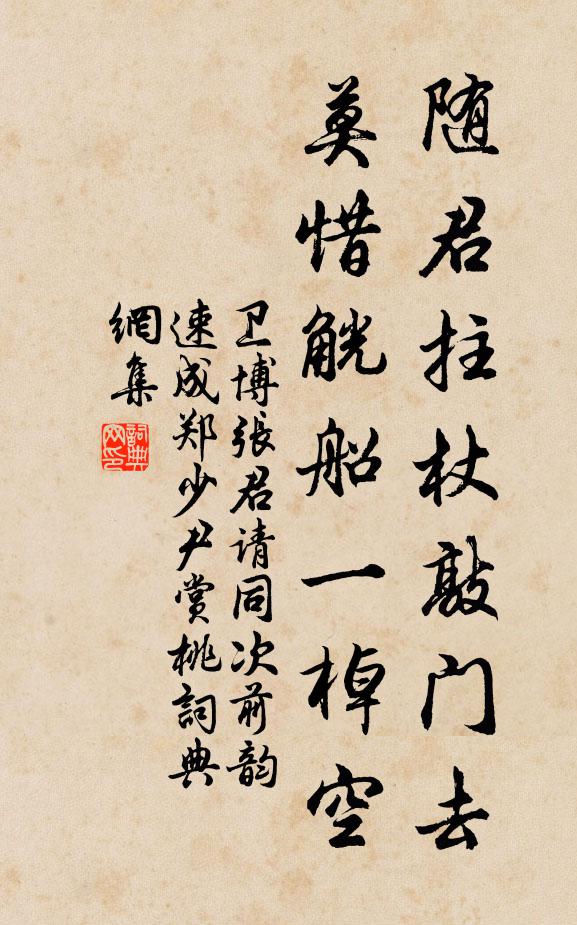 随君拄杖敲门去
莫惜觥船一棹空
卫博張君请同次前韵
速成郑少尹赏桃詞典
網集
詞典
网印